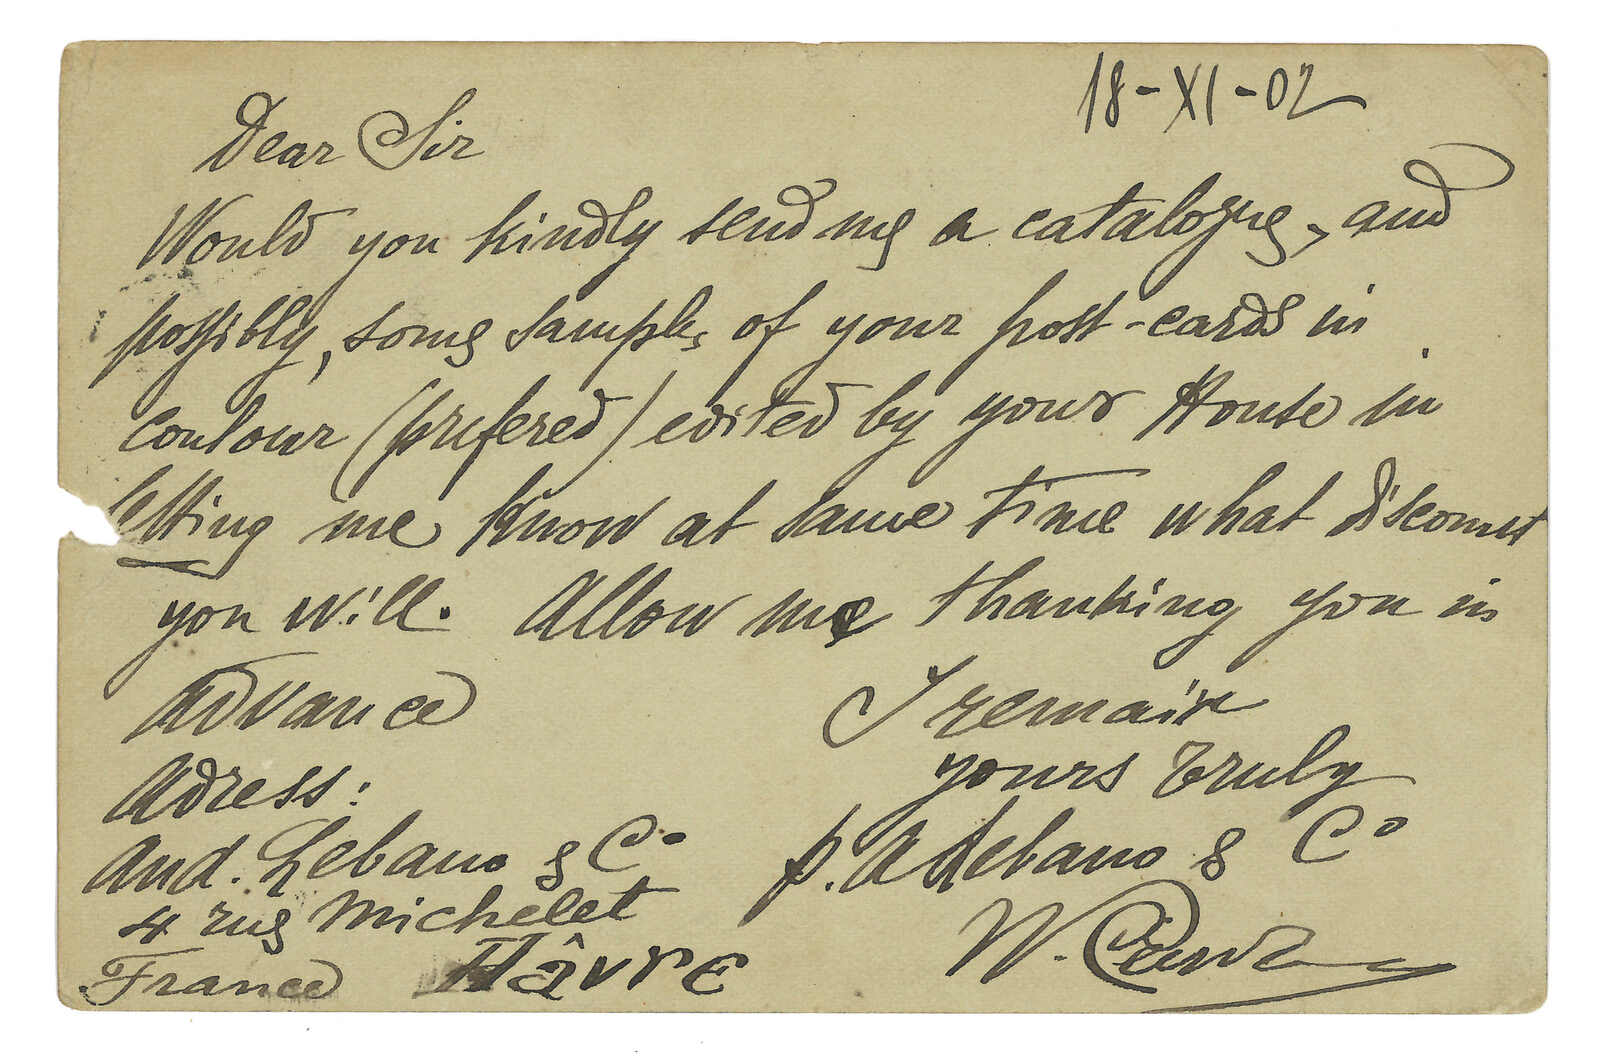 18-XI-02
Dear Sir
Would you kindly send me a catalogue, and
possibly, some samples of your post-cards in
coulour (prefered) edited by your House in
letting me know at same time what discount
you will. Allow me thanking you in
advance
I remain
yours truly
Adress:
And. Lebano & Co
p. A Lebano & Co
4 rue Michelet
Hâvre
France
W.